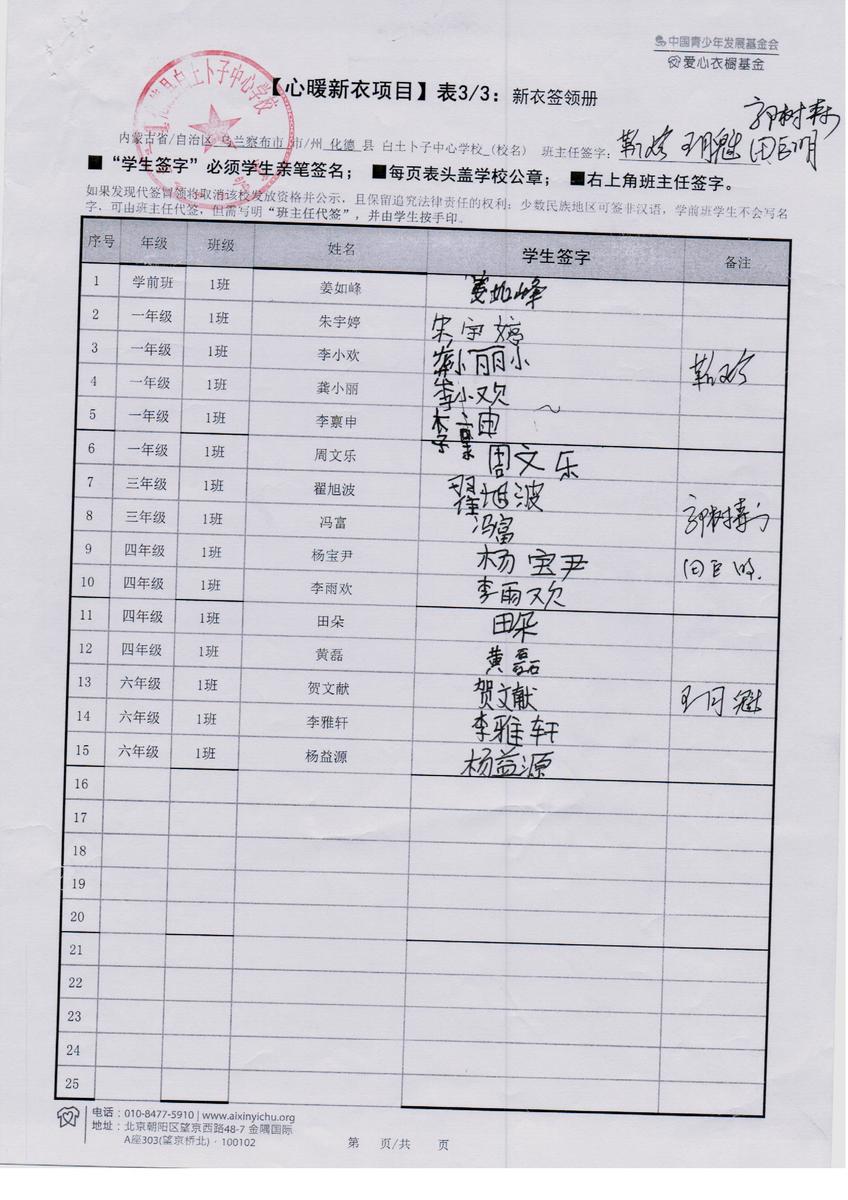 中国青少年发展基金会
爱心衣橱基金
白土卜子中心学校
【心暖新衣项目】表3/3：新衣签领册
内蒙古省/自治区 乌兰察布市 市/州 化德 县 白土卜子中心学校 (校名) 班主任签字：
田巨明
■“学生签字”必须学生亲笔签名； ■每页表头盖学校公章； ■右上角班主任签字。
如果发现代签冒领将取消该校发放资格并公示，且保留追究法律责任的权利；少数民族地区可签非汉语，学前班学生不会写名
字，可由班主任代签，但需写明“班主任代签”，并由学生按手印。
序号 年级 班级 姓名 学生签字 备注
1 学前班 1班 姜如峰 姜如峰
2 一年级 1班 朱宇婷 朱宇婷
3 一年级 1班 李小欢 龚小丽小
4 一年级 1班 龚小丽 李小欢
5 一年级 1班 李禀申 李禀申
6 一年级 1班 周文乐 周文乐
7 三年级 1班 翟旭波 翟旭波
8 三年级 1班 冯富 冯富
9 四年级 1班 杨宝尹 杨宝尹 田巨明
10 四年级 1班 李雨欢 李雨欢
11 四年级 1班 田朵 田朵
12 四年级 1班 黄磊 黄磊
13 六年级 1班 贺文献 贺文献
14 六年级 1班 李雅轩 李雅轩
15 六年级 1班 杨益源 杨益源
16
17
18
19
20
21
22
23
24
25
电话：010-8477-5910 | www.aixinyichu.org
地址：北京朝阳区望京西路48-7 金隅国际
A座303(望京桥北) · 100102
第 页/共 页